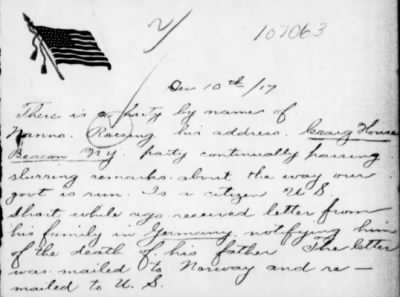 107063
Dec 10th/17
There is a party by name of
Nanno. Roesing. his address. Craig House
Beacon N.Y. party continually passing
slurring remarks about the way our
govt is run. Is a citizen U S
Short while ago received letter from
his family in Germany, notifying him
of the death of his father The letter
was mailed to Norway and re-
mailed to U. S.